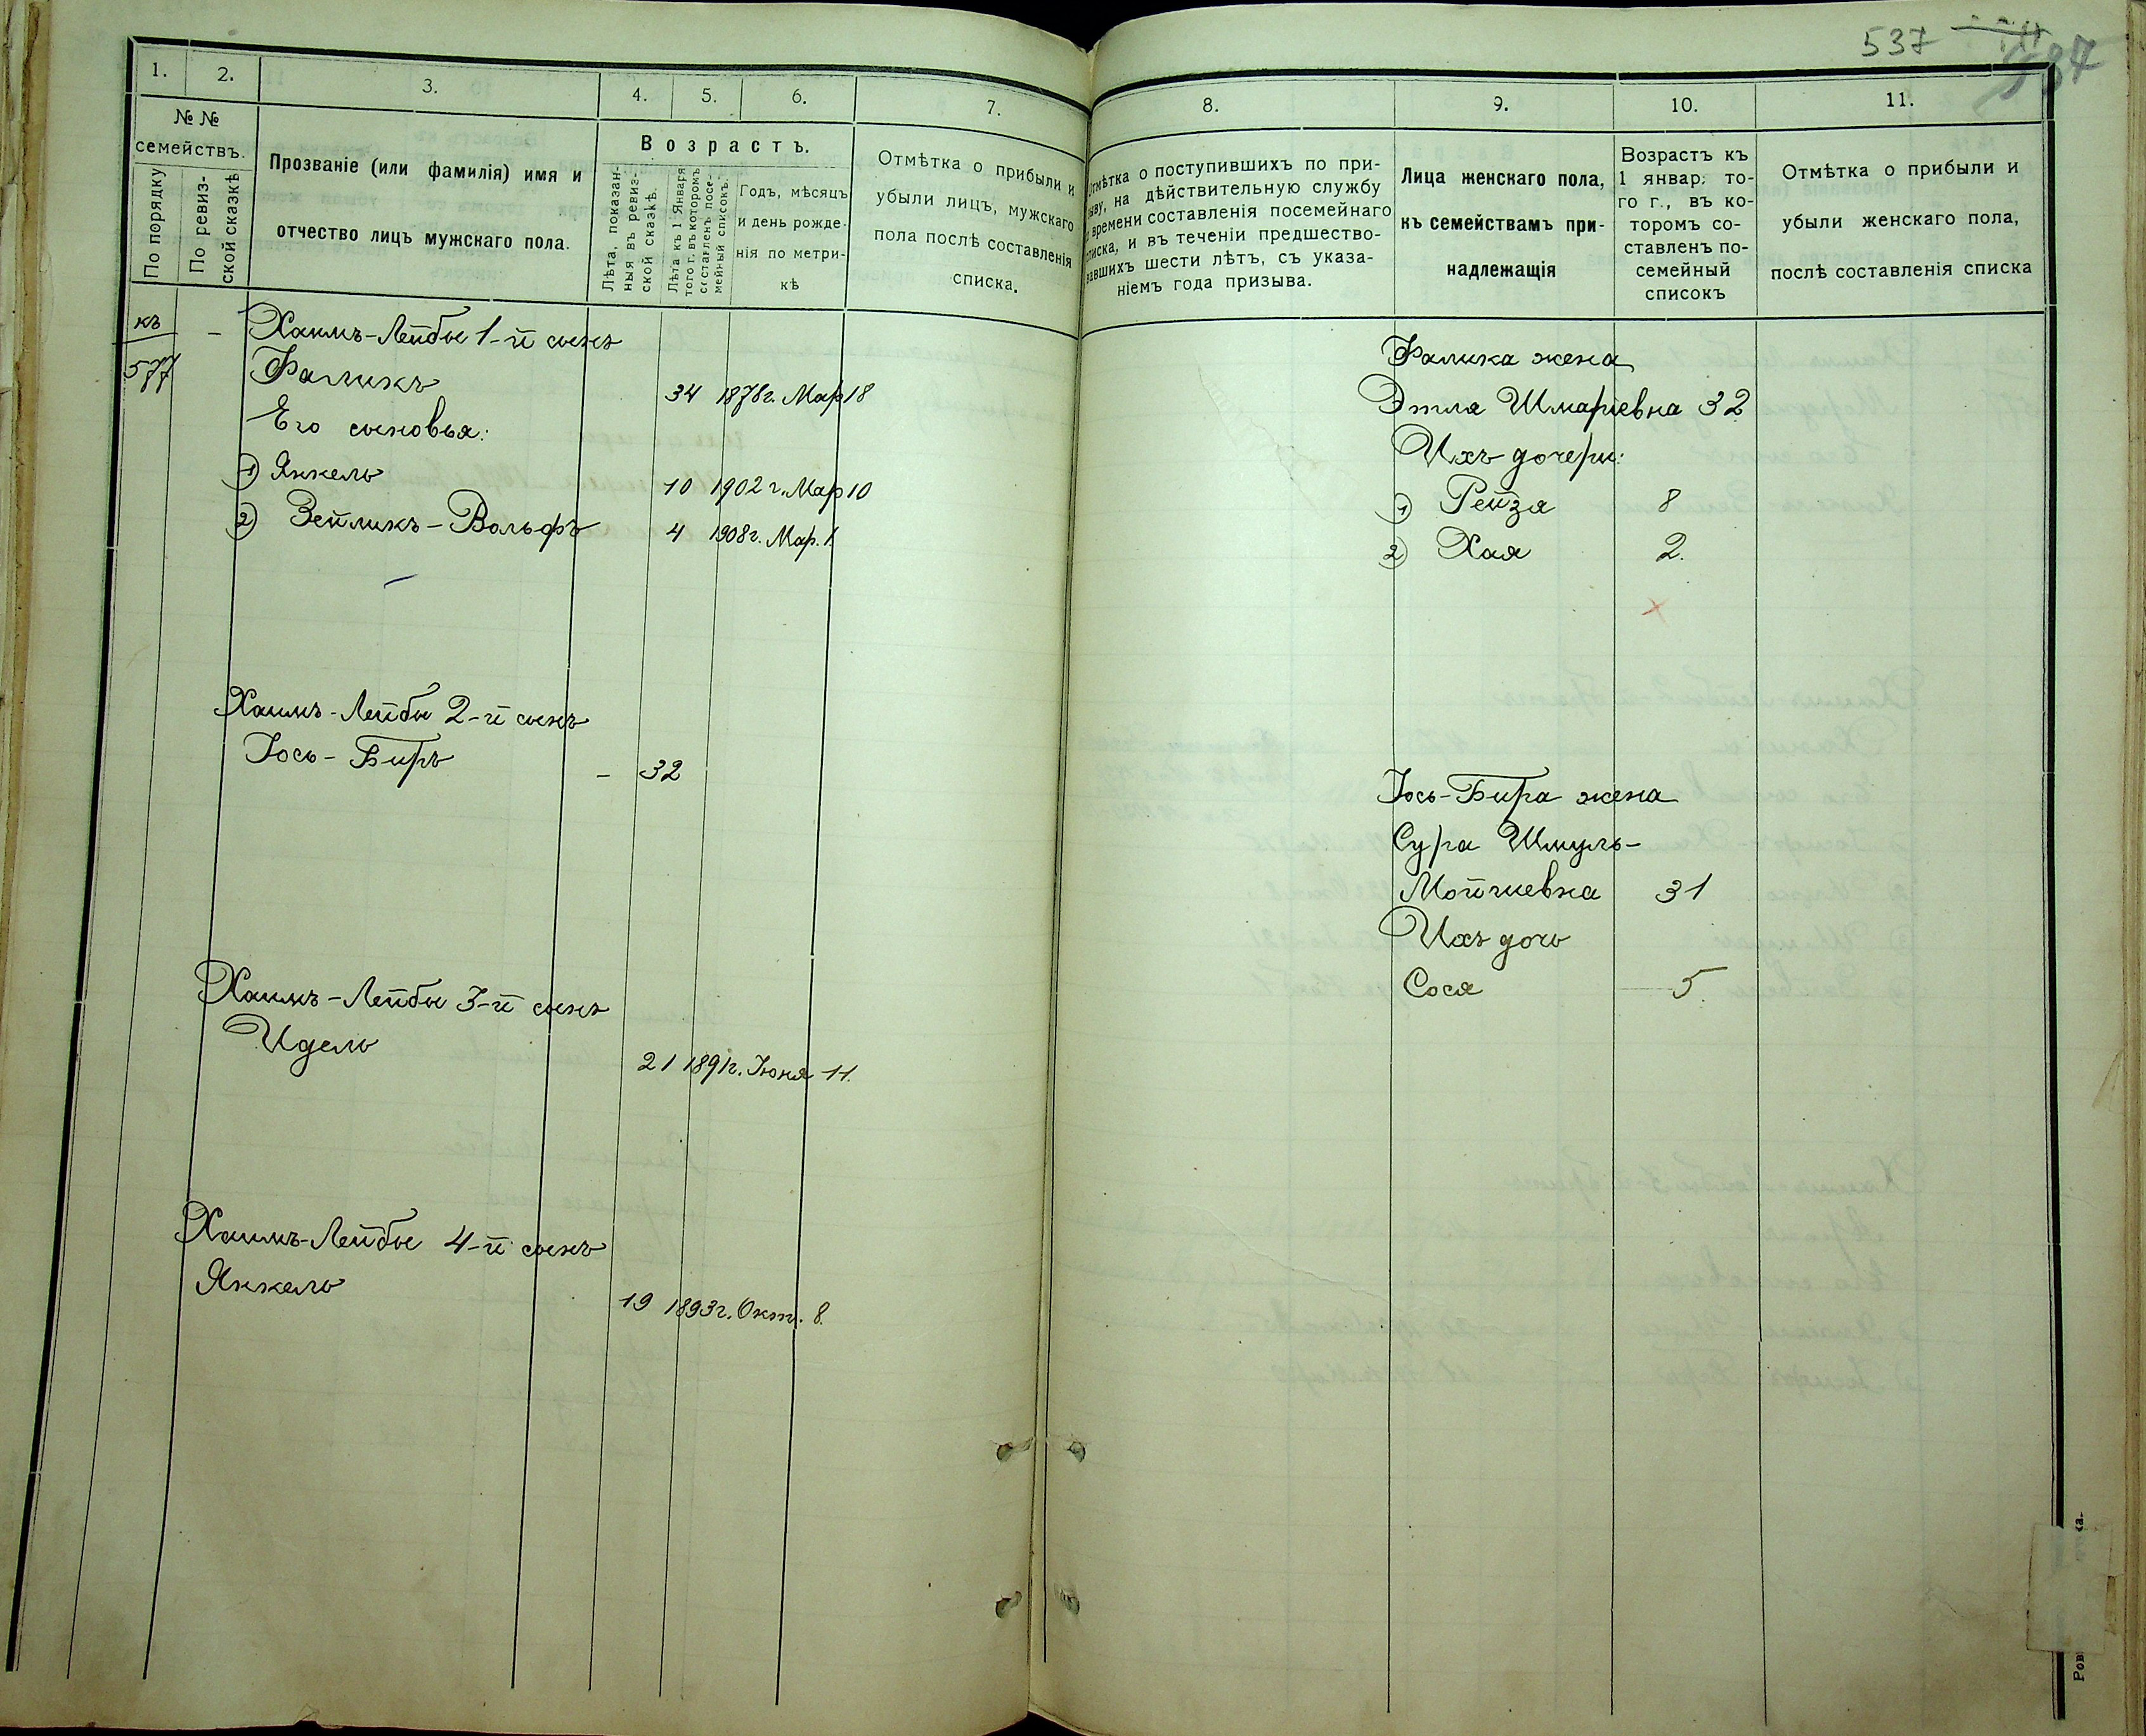 537
537
1.
2.
3.
4.
5.
6.
7.
№ №
семействъ.
По порядку
По ревиз-
ской сказкѣ
Прозваніе (или фамилія) имя и
отчество лицъ мужскаго пола.
Возрастъ.
Лѣта, показан-
ныя въ ревиз-
ской сказкѣ.
Лѣта къ 1 Января
того г. въ которомъ
составленъ посе-
мейный списокъ.
Годъ, мѣсяцъ
и день рожде-
нія по метри-
кѣ
Отмѣтка о прибыли и
убыли лицъ, мужскаго
пола послѣ составленія
списка.
къ
577
– Хаимъ-Лейбы 1-й сынъ
Фаликъ 34 1878г. Мар 18
Его сыновья:
1) Янкель 10 1902 г. Мар 10
2) Зейликъ-Вольфъ 4 1908г. Мар. 1.
Хаимъ-Лейбы 2-й сынъ
Іось-Биръ – 32
Хаимъ-Лейбы 3-й сынъ
Идель 21 1891г. Іюня 11.
Хаимъ-Лейбы 4-й сынъ
Янкель 19 1893г. Окт. 8.
8.
9.
10.
11.
Отмѣтка о поступившихъ по при-
зыву, на дѣйствительную службу
времени составленія посемейнаго
списка, и въ теченіи предшество-
вавшихъ шести лѣтъ, съ указа-
ніемъ года призыва.
Лица женскаго пола,
къ семействамъ при-
надлежащія
Возрастъ къ
1 январ. то-
го г., въ ко-
торомъ со-
ставленъ по-
семейный
списокъ
Отмѣтка о прибыли и
убыли женскаго пола,
послѣ составленія списка
Фалика жена
Этля Шмаріевна 32
Ихъ дочери:
1) Рейзя 8
2) Хая 2.
Іось-Бира жена
Сура Шмуль-
Мойшевна 31
Ихъ дочь
Сося 5.